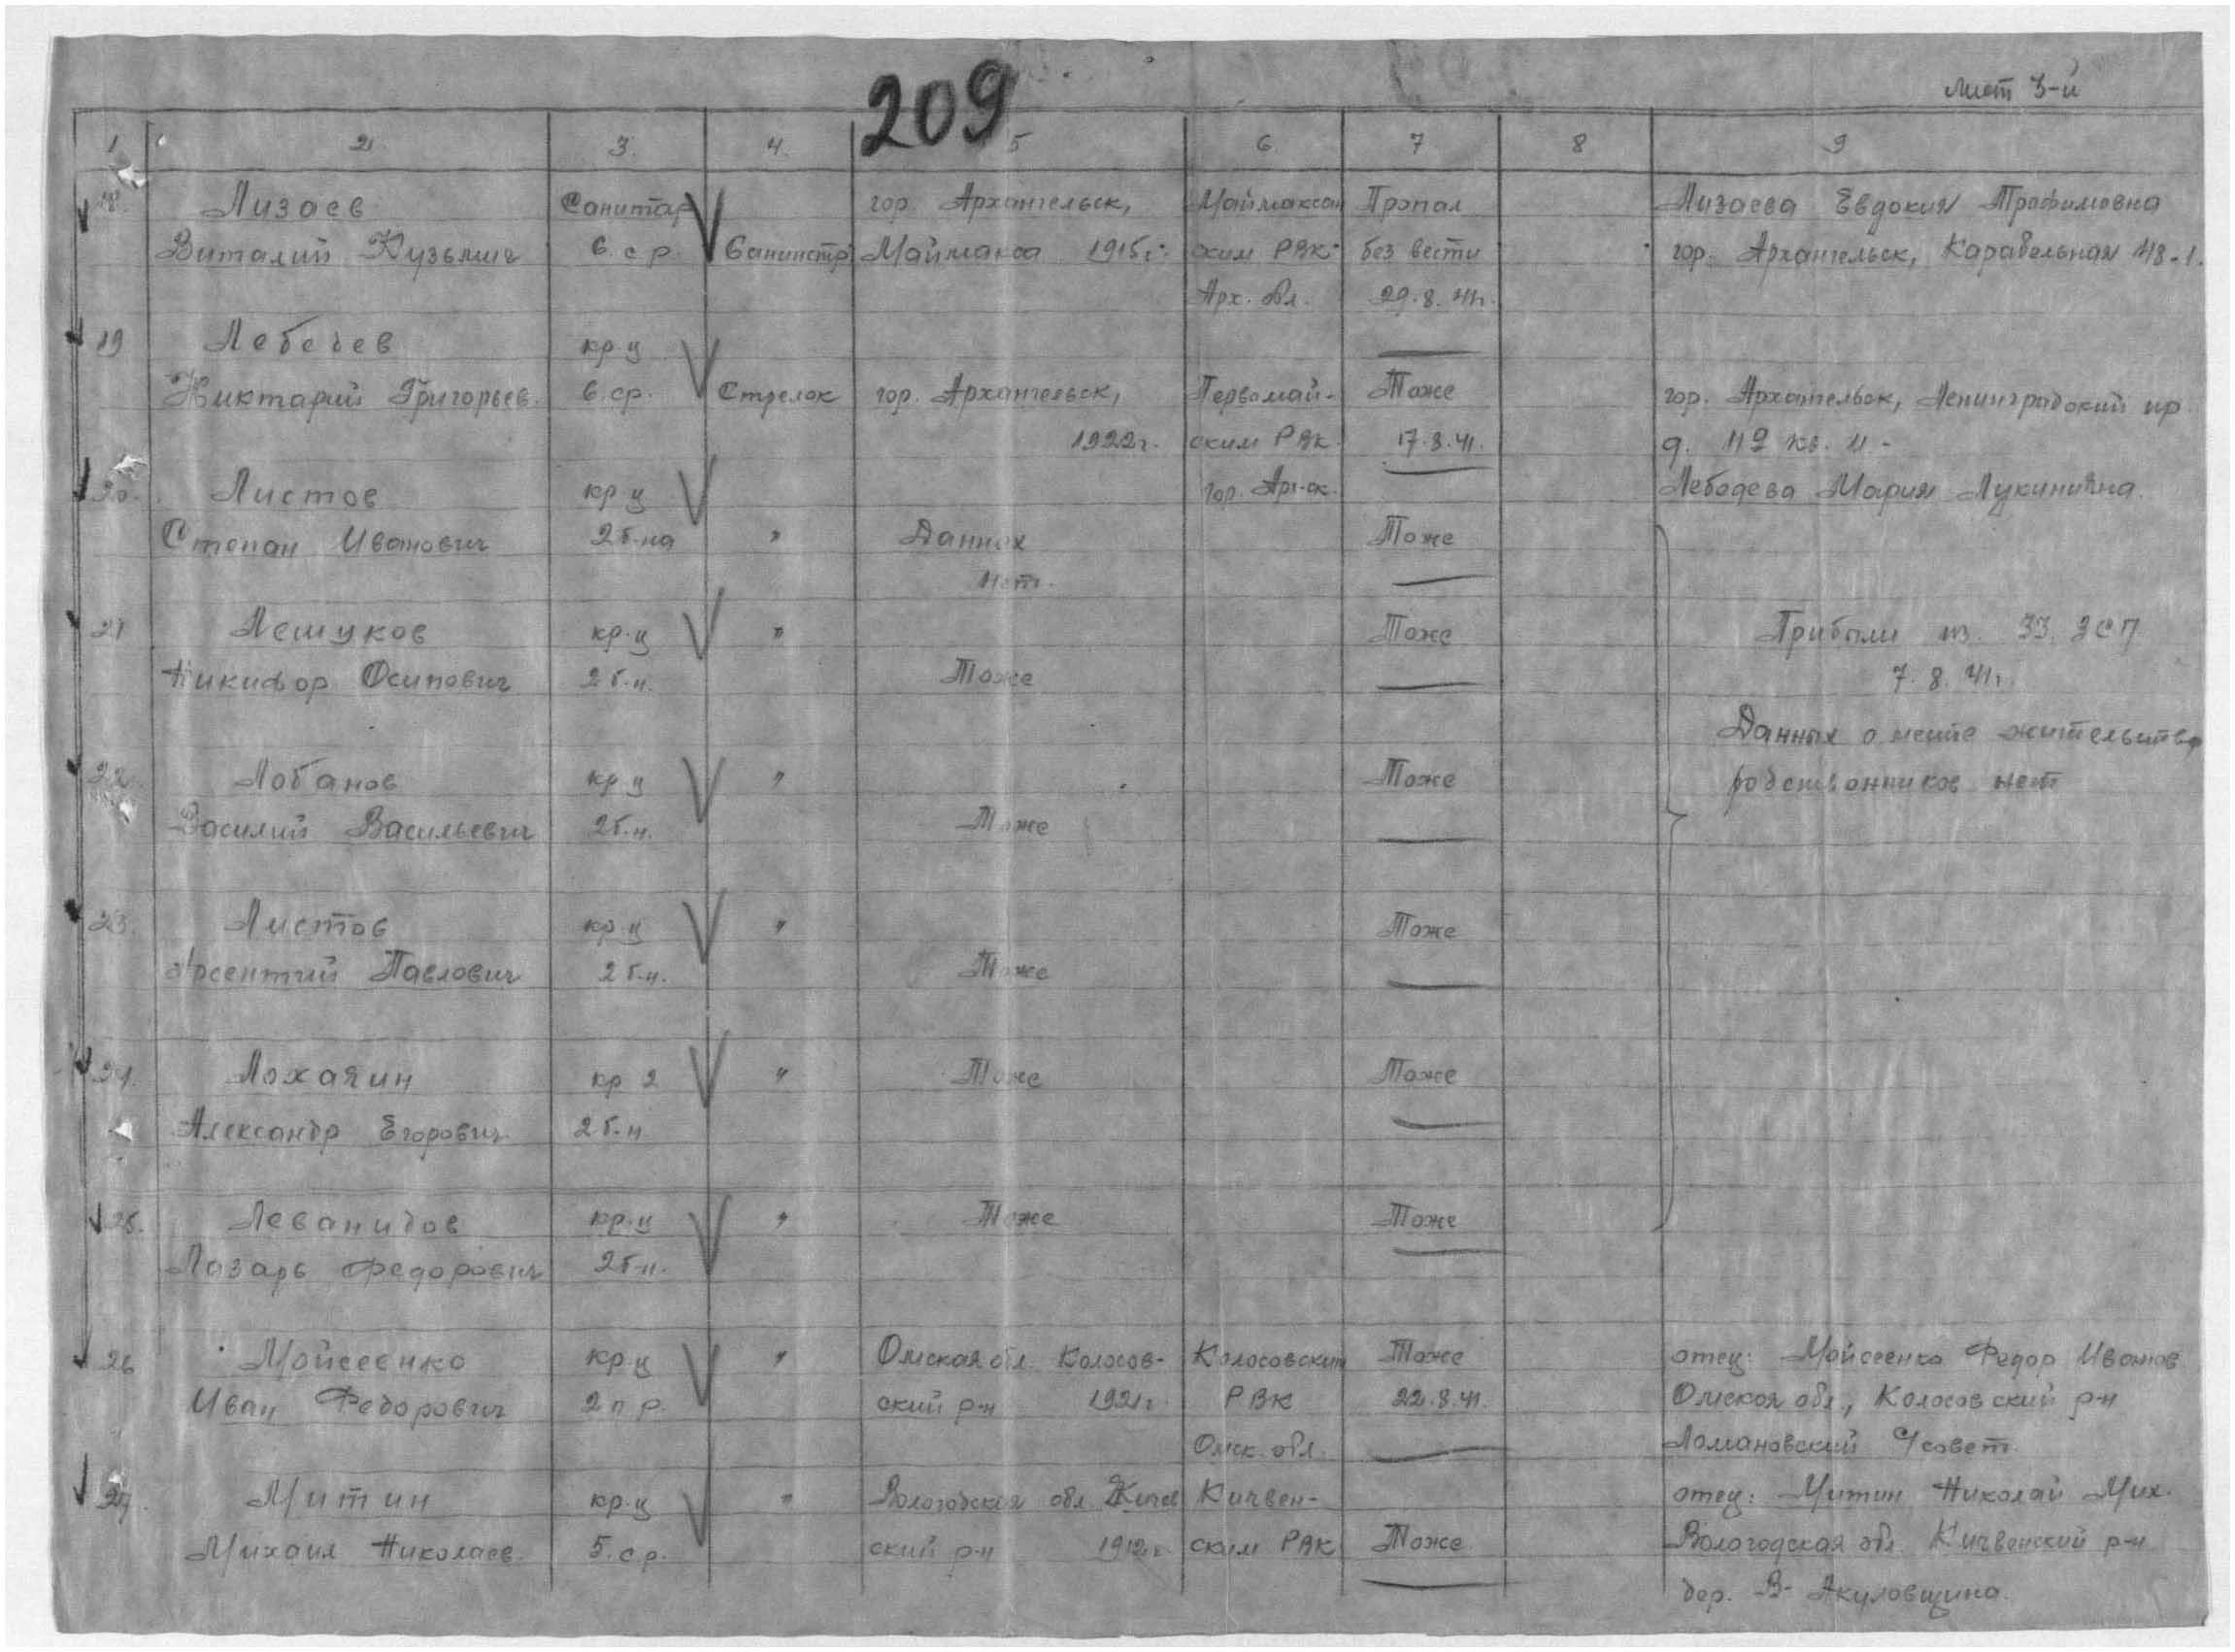 209
лист 3-й
1 2 3. 4. 5 6. 7 8 9
18. Лизаев Санитар гор. Архангельск, Маймаксан Пропал Лизаева Евдокия Трофимовна
Виталий Кузьмич 6. с р. Санинстр Маймакса 1915г. ским РВК без вести гор. Архангельск, Карабельная 48-1.
Арх. обл. 29.8.41г.
19 Лебедев кр-ц
Никтарий Григорьев. 6. ср. Стрелок гор. Архангельск, Первомай- Тоже гор. Архангельск, Ленинградский пр
1922г. ским РВК 17.8.41. д. 119 кв. 11 -
20. Листов кр-ц гор. Арх-ск. Лебедева Мария Лукинична.
Степан Иванович 2 б-на " Данных Тоже
нет.
21 Лешуков кр-ц " Тоже Прибыли из 33 ЗСП
Никифор Осипович 2 б-н. Тоже 7.8.41г.
Данных о месте жительства
22 Лобанов кр-ц " Тоже родственников нет
Василий Васильевич 2 б-н. Тоже
23. Листов кр-ц " Тоже
Арсентий Павлович 2 б-н. Тоже
24. кр " Тоже Тоже
Александр Егорович 2 б-н
25. Леванидов кр-ц " Тоже Тоже
Лазарь Федорович 2 б-н.
26 Мойсеенко кр-ц " Омская обл. Колосов- Колосовским Тоже отец: Мойсеенко Федор Иванов
Иван Федорович 2 п р. ский р-н 1921г. РВК 22.8.41. Омская обл., Колосовский р-н
Омск. обл. Ломановский с/совет.
27. Митин кр-ц " Вологодская обл. Кичвен- отец: Митин Николай Мих.
Михаил Николаев. 5. с р. ский р-н 1912г. ским РВК Тоже Вологодская обл. Кичвенский р-н
дер. В- Акуловщина.